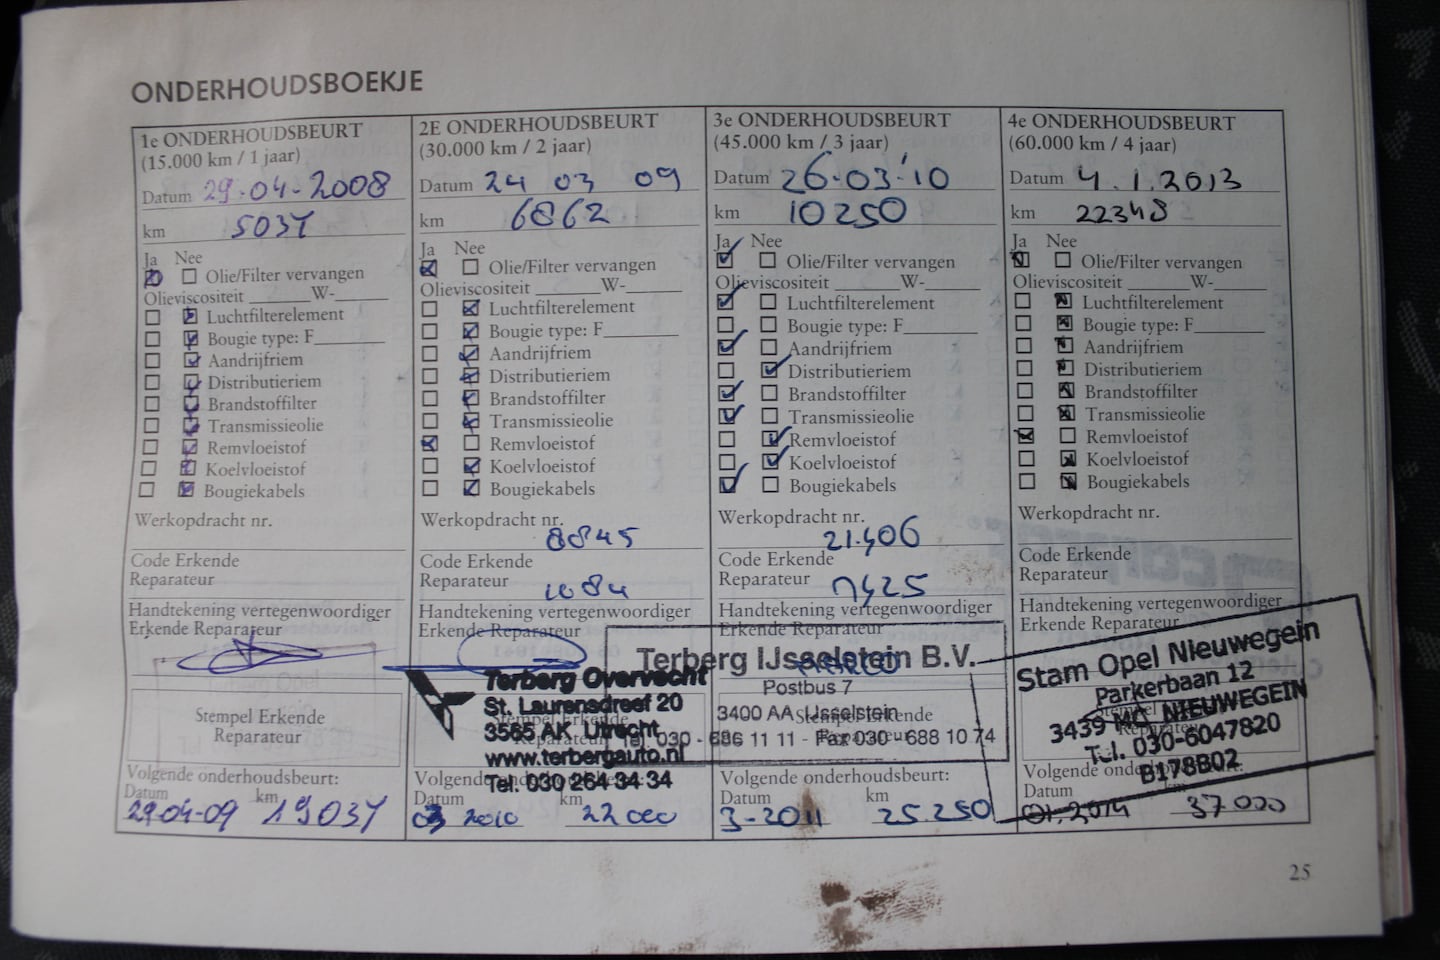 ONDERHOUDSBOEKJE
1e ONDERHOUDSBEURT
(15.000 km / 1 jaar)
Datum 29-04-2008
km 5034
Ja Nee
Olie/Filter vervangen
Olieviscositeit ______W-_____
Luchtfilterelement
Bougie type: F_______
Aandrijfriem
Distributieriem
Brandstoffilter
Transmissieolie
Remvloeistof
Koelvloeistof
Bougiekabels
Werkopdracht nr.
Code Erkende
Reparateur
Handtekening vertegenwoordiger
Erkende Reparateur
Stempel Erkende
Reparateur
Volgende onderhoudsbeurt:
Datum km
29-04-09 19034
2E ONDERHOUDSBEURT
(30.000 km / 2 jaar)
Datum 24 03 09
km 6862
Ja Nee
Olie/Filter vervangen
Olieviscositeit ______W-_____
Luchtfilterelement
Bougie type: F_______
Aandrijfriem
Distributieriem
Brandstoffilter
Transmissieolie
Remvloeistof
Koelvloeistof
Bougiekabels
Werkopdracht nr.
8845
Code Erkende
Reparateur
1084
Handtekening vertegenwoordiger
Erkende Reparateur
Terberg Overvecht
St. Laurensdreef 20
3565 AK Utrecht
www.terbergauto.nl
Tel. 030 264 34 34
Stempel Erkende
Reparateur
Volgende
Datum
03 2010 22 000
3e ONDERHOUDSBEURT
(45.000 km / 3 jaar)
Datum 26-03-'10
km 10250
Ja Nee
Olie/Filter vervangen
Olieviscositeit ______W-_____
Luchtfilterelement
Bougie type: F_______
Aandrijfriem
Distributieriem
Brandstoffilter
Transmissieolie
Remvloeistof
Koelvloeistof
Bougiekabels
Werkopdracht nr.
21.406
Code Erkende
Reparateur
Handtekening vertegenwoordiger
Erkende Reparateur
Terberg IJsselstein B.V.
Postbus 7
3400 AA IJsselstein
Tel. 030 - 686 11 11 - Fax 030 - 688 10 74
Stempel Erkende
Reparateur
Volgende onderhoudsbeurt:
Datum km
3-2011 25.250
4e ONDERHOUDSBEURT
(60.000 km / 4 jaar)
Datum 4.1.2013
km 22348
Ja Nee
Olie/Filter vervangen
Olieviscositeit ______W-_____
Luchtfilterelement
Bougie type: F_______
Aandrijfriem
Distributieriem
Brandstoffilter
Transmissieolie
Remvloeistof
Koelvloeistof
Bougiekabels
Werkopdracht nr.
Code Erkende
Reparateur
Handtekening vertegenwoordiger
Erkende Reparateur
Stam Opel Nieuwegein
Parkerbaan 12
3439 MC NIEUWEGEIN
Tel. 030-6047820
B178B02
Volgende onderhoudsbeurt:
Datum km
01.2014 37.000
25